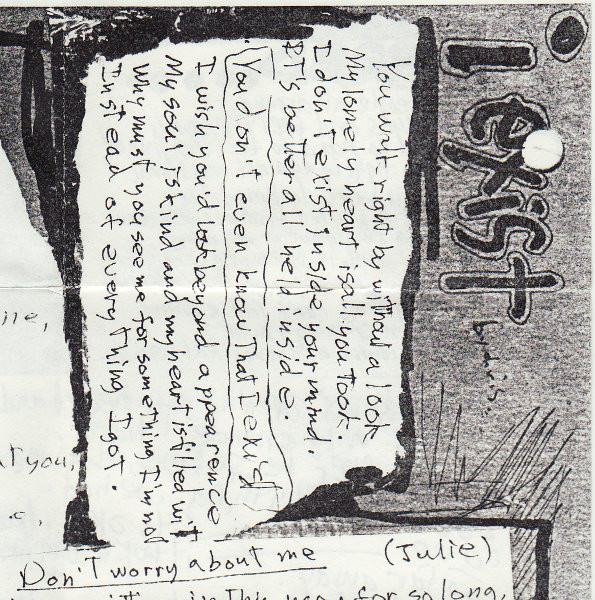 I exist
by
You walk right by without a look
My lonely heart is all you took.
I don't exist inside your mind.
It's better all held inside.
You don't even know That I exist
I wish you'd look beyond appearence
My soul is kind and my heart is filled wit
Why must you see me for something I'm not
Instead of everything I got.
at you,
Don't worry about me (Julie)
in this for so long,